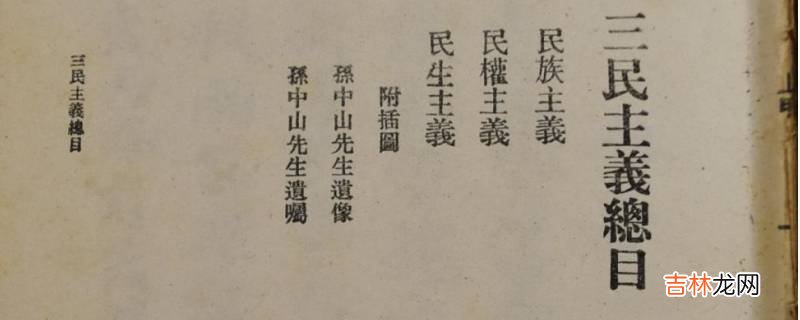 三民主義總目
民族主義
民權主義
民生主義
附插圖
孫中山先生遺像
孫中山先生遺囑
三民主義總目
吉林龙网